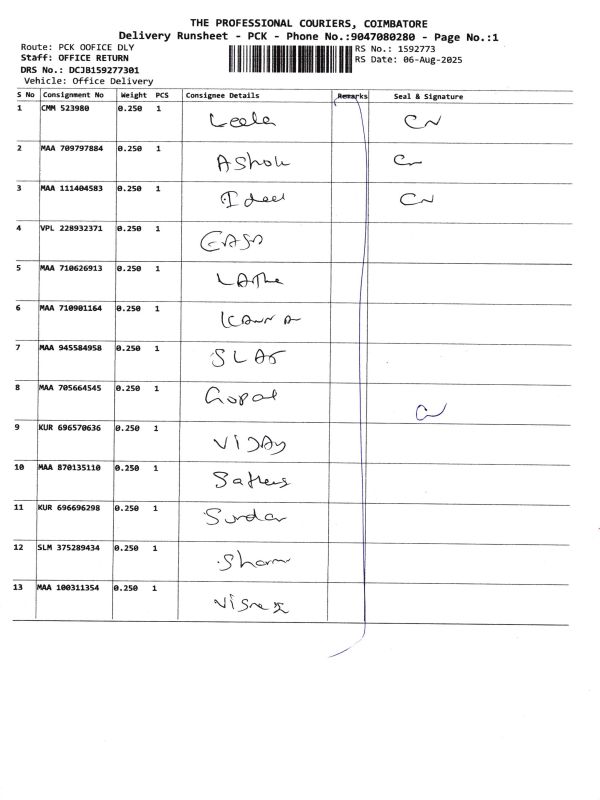 THE PROFESSIONAL COURIERS, COIMBATORE
Delivery Runsheet - PCK - Phone No.:9047080280 - Page No.:1
Route: PCK OOFICE DLY RS No.: 1592773
Staff: OFFICE RETURN RS Date: 06-Aug-2025
DRS No.: DCJB159277301
Vehicle: Office Delivery
S No Consignment No Weight PCS Consignee Details Remarks Seal & Signature
1 CMM 523980 0.250 1 Leela
2 MAA 709797884 0.250 1 AShok
3 MAA 111404583 0.250 1
4 VPL 228932371 0.250 1
5 MAA 710626913 0.250 1
6 MAA 710901164 0.250 1
7 MAA 945584958 0.250 1
8 MAA 705664545 0.250 1 Gopal
9 KUR 696570636 0.250 1 VIJAy
10 MAA 870135110 0.250 1
11 KUR 696696298 0.250 1 Sundar
12 SLM 375289434 0.250 1
13 MAA 100311354 0.250 1